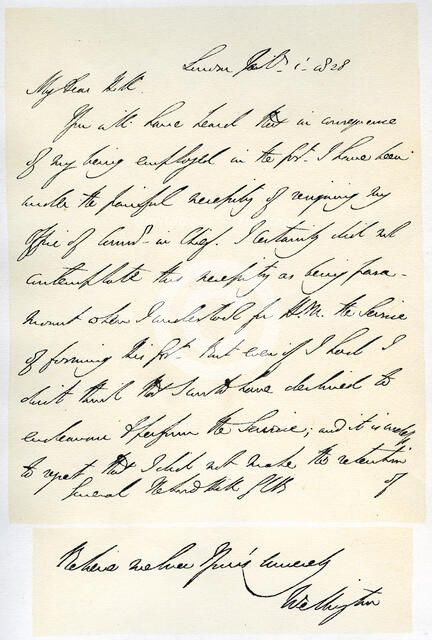 London Feb. 1. 1828
My Dear Hill.
You will have heard that in consequence
of my being employed in the Gt. I have been
under the painful necessity of resigning my
Office of Commr in Chief. I certainly did not
contemplate this necessity as being para-
mount when I undertook for H.M. the Service
of forming his Gt. But even if I had I
don't think that I should have declined to
endeavour to perform the Service; and it is useless
to regret that I did not make the retention
of
General Lord Hill GCB
Believe me Ever Yours sincerely
Wellington